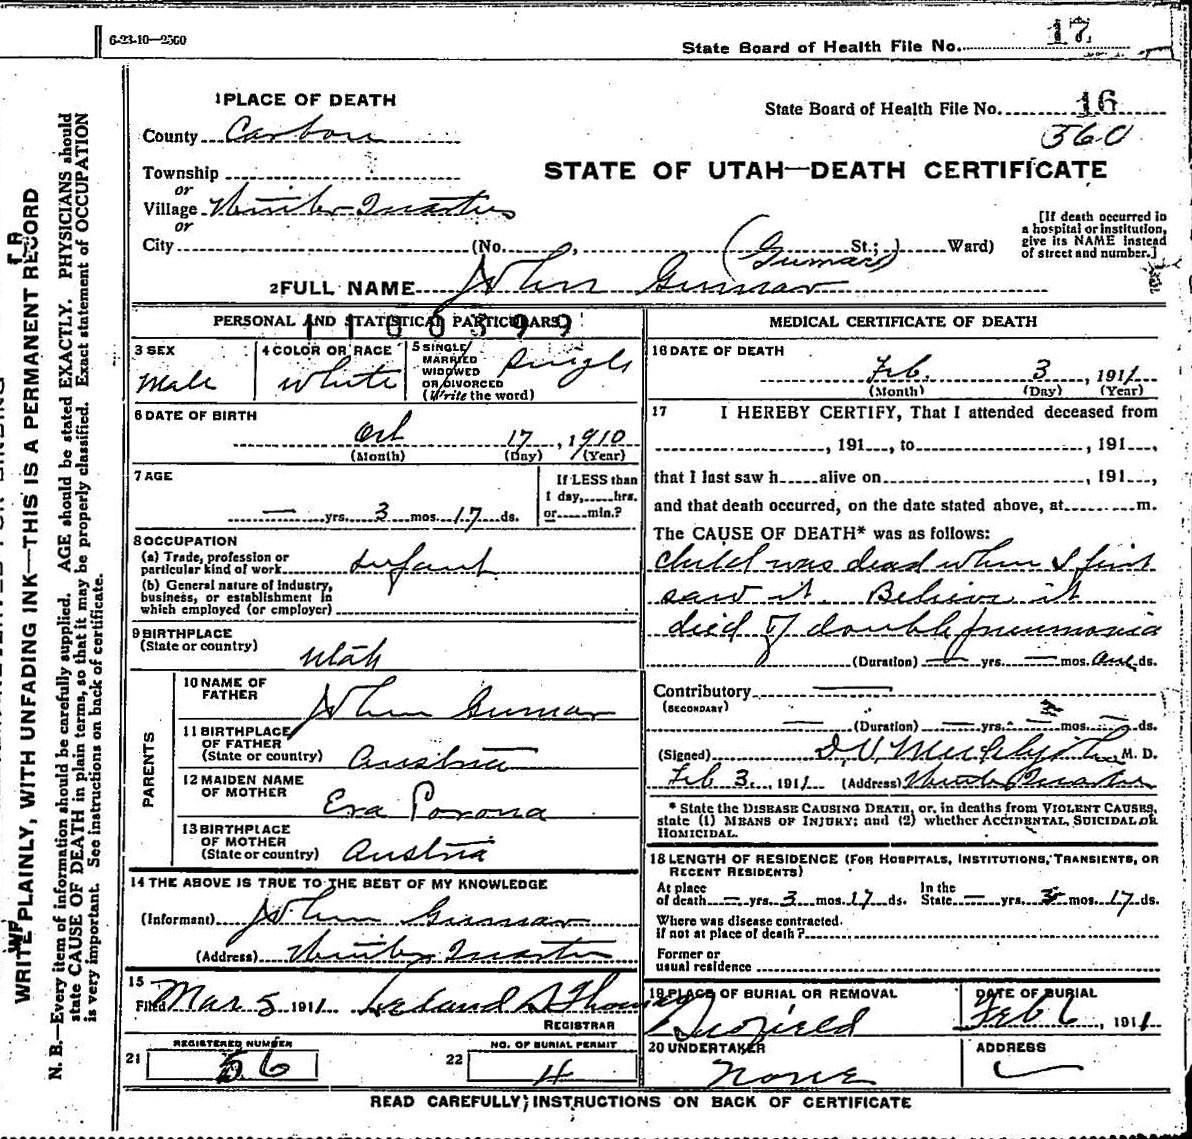 6-23-10—2500
State Board of Health File No. 17
1 PLACE OF DEATH
State Board of Health File No. 16
County Carbon
560
Township
STATE OF UTAH—DEATH CERTIFICATE
or
Village Winter Quarters
or
City (No. St.; Ward)
[If death occurred in a hospital or institution, give its NAME instead of street and number.]
(Gumar)
2 FULL NAME John Gumar
PERSONAL AND STATISTICAL PARTICULARS
3 SEX Male
4 COLOR OR RACE White
5 SINGLE, MARRIED WIDOWED OR DIVORCED (Write the word) Single
6 DATE OF BIRTH
Oct 17, 1910
(Month) (Day) (Year)
7 AGE
— yrs. 3 mos. 17 ds.
If LESS than 1 day, hrs. or min.?
8 OCCUPATION
(a) Trade, profession or particular kind of work Infant
(b) General nature of industry, business, or establishment in which employed (or employer)
9 BIRTHPLACE
(State or country) Utah
PARENTS
10 NAME OF FATHER John Gumar
11 BIRTHPLACE OF FATHER (State or country) Austria
12 MAIDEN NAME OF MOTHER Eva Porona
13 BIRTHPLACE OF MOTHER (State or country) Austria
14 THE ABOVE IS TRUE TO THE BEST OF MY KNOWLEDGE
(Informant) John Gumar
(Address) Winter Quarters
15
Filed Mar 5 1911 Leland
REGISTRAR
21 REGISTERED NUMBER 56
22 NO. OF BURIAL PERMIT 4
MEDICAL CERTIFICATE OF DEATH
16 DATE OF DEATH
Feb. 3, 1911
(Month) (Day) (Year)
17 I HEREBY CERTIFY, That I attended deceased from
, 191 , to , 191 ,
that I last saw h alive on , 191 ,
and that death occurred, on the date stated above, at m.
The CAUSE OF DEATH* was as follows:
child was dead when I first
saw it. Believe it
died of double pneumonia
(Duration) — yrs. — mos. one ds.
Contributory —
(SECONDARY)
— (Duration) — yrs. — mos. — ds.
(Signed) M. D.
Feb 3, 1911 (Address) Winter Quarters
* State the DISEASE CAUSING DEATH, or, in deaths from VIOLENT CAUSES,
state (1) MEANS OF INJURY; and (2) whether ACCIDENTAL, SUICIDAL OR
HOMICIDAL.
18 LENGTH OF RESIDENCE (FOR HOSPITALS, INSTITUTIONS, TRANSIENTS, OR
RECENT RESIDENTS)
At place of death — yrs. 3 mos. 17 ds. In the State — yrs. 3 mos. 17 ds.
Where was disease contracted.
if not at place of death?
Former or
usual residence
19 PLACE OF BURIAL OR REMOVAL
Scofield
DATE OF BURIAL
Feb 6, 1911
20 UNDERTAKER
None
ADDRESS
READ CAREFULLY; INSTRUCTIONS ON BACK OF CERTIFICATE
WRITE PLAINLY, WITH UNFADING INK—THIS IS A PERMANENT RECORD
N. B.—Every item of information should be carefully supplied. AGE should be stated EXACTLY. PHYSICIANS should
state CAUSE OF DEATH in plain terms, so that it may be properly classified. Exact statement of OCCUPATION
is very important. See instructions on back of certificate.